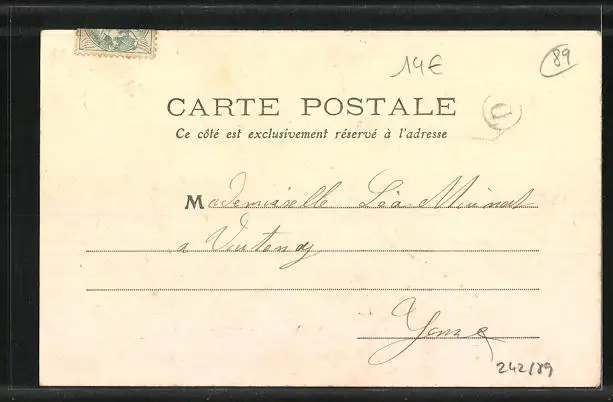 14€
89
CARTE POSTALE
Ce côté est exclusivement réservé à l'adresse
D
Mademoiselle Léa Miénat
a Vertenay
Yonne
242/89